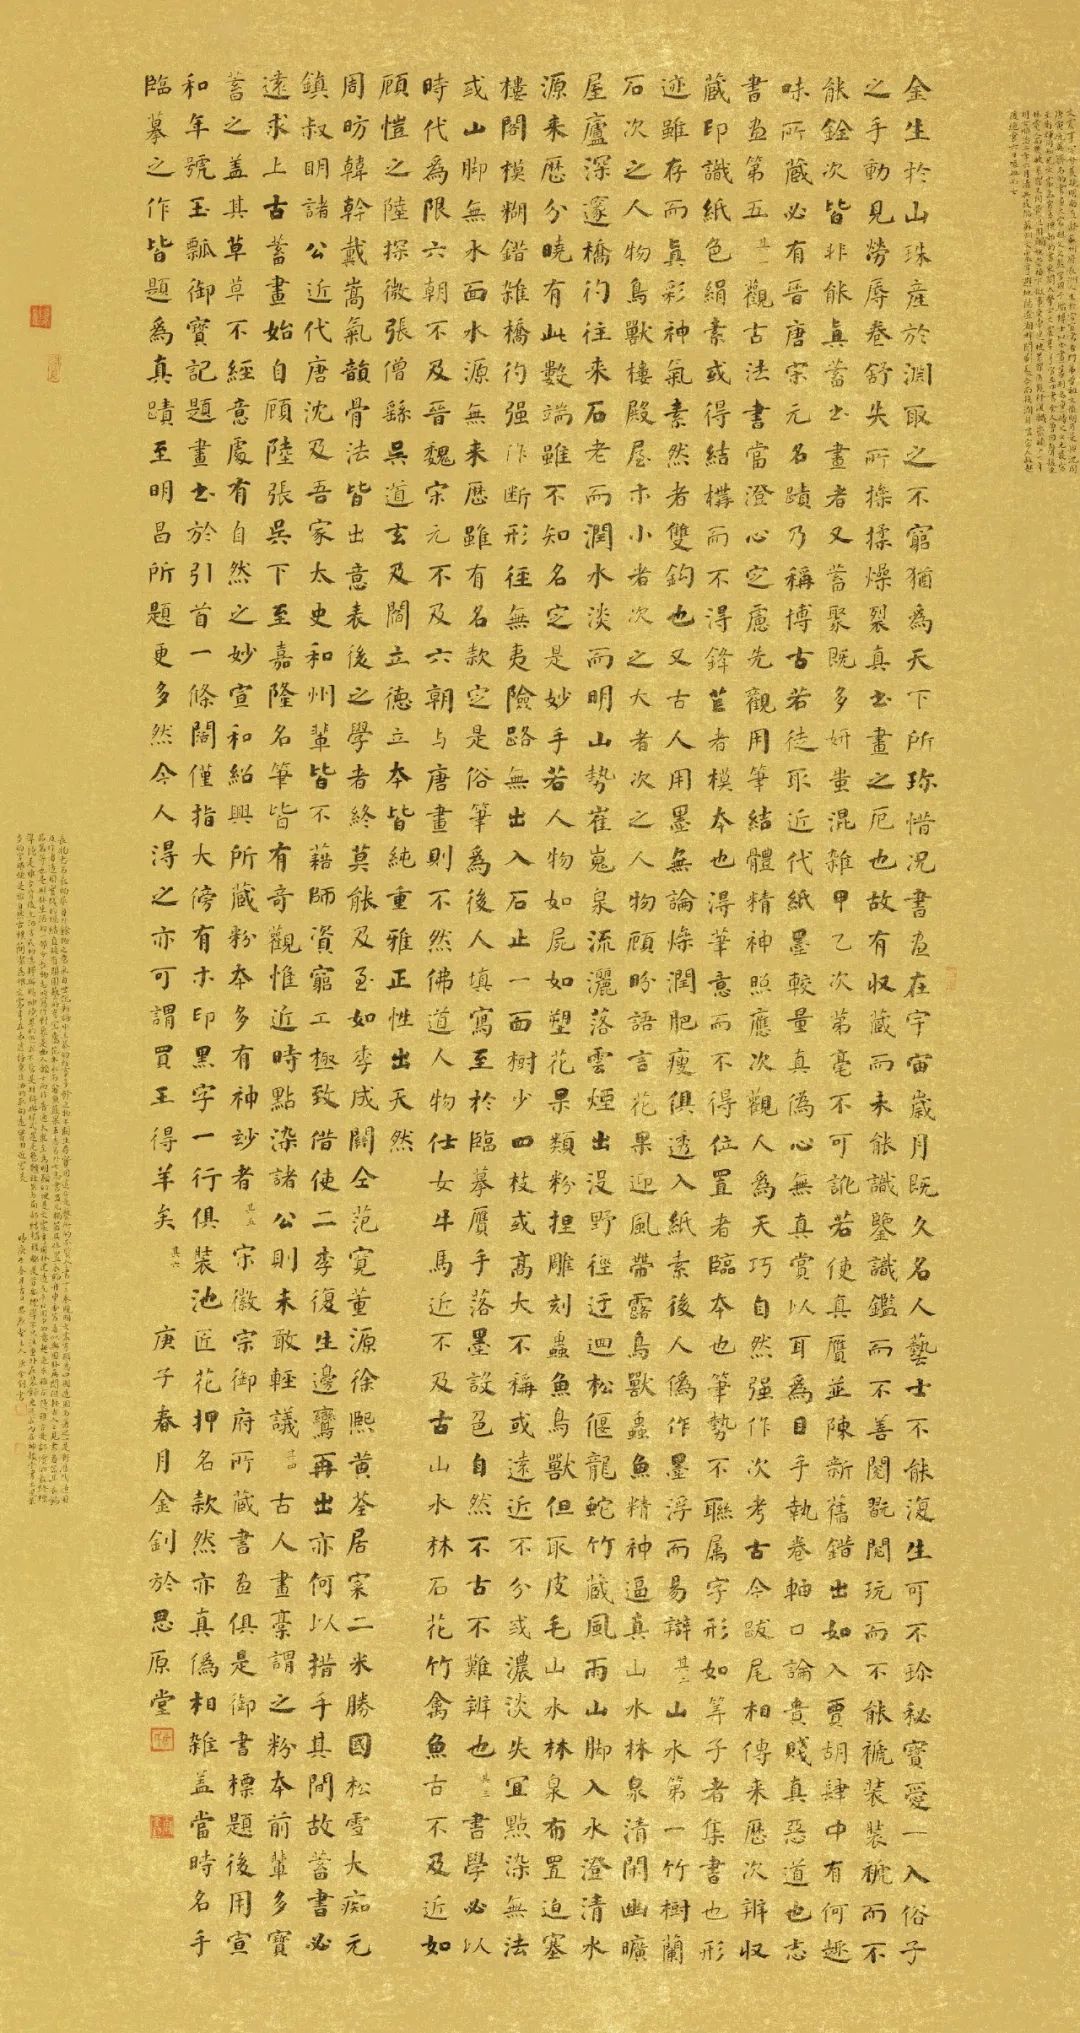 金生於山珠產於淵取之不窮猶為天下所珍惜況書畫在宇宙歲月既久名人藝士不能復生可不珍秘寶愛一入俗子
之手動見勞辱卷舒失所操揉燥裂真書畫之厄也故有收藏而未能識鑒識鑑而不善閱翫閱玩而不能裱裝裝褫而不
能銓次皆非能真蓄書畫者又蓄聚既多妍蚩混雜甲乙次第毫不可訛若使真贗並陳新舊錯出如入賈胡肆中有何趣
味所藏必有晉唐宋元名蹟乃稱博古若徒取近代紙墨較量真偽心無真賞以耳為目手執卷軸口論貴賤真惡道也志
書畫第五 其一 觀古法書當澄心定慮先觀用筆結體精神照應次觀人為天巧自然强作次考古今跋尾相傳來歷次辨收
藏印識紙色絹素或得結構而不得鋒芒者模本也得筆意而不得位置者臨本也筆勢不聯屬字形如筭子者集書也形
迹雖存而真彩神氣素然者雙鈎也又古人用墨無論燥潤肥瘦俱透入紙素後人偽作墨浮而易辯 其二 山水第一竹樹蘭
石次之人物鳥獸樓殿屋木小者次之大者次之人物顧盼語言花果迎風帶露鳥獸蟲魚精神逼真山水林泉清閑幽曠
屋廬深邃橋彴往來石老而潤水淡而明山勢崔嵬泉流灑落雲煙出沒野徑迂迴松偃龍蛇竹藏風雨山脚入水澄清水
源來歷分曉有此數端雖不知名定是妙手若人物如屍如塑花果類粉捏雕刻蟲魚鳥獸但取皮毛山水林泉布置迫塞
樓閣模糊錯雜橋彴强作断形徑無夷險路無出入石止一面樹少四枝或高大不稱或遠近不分或濃淡失宜點染無法
或山脚無水面水源無來歷雖有名款定是俗筆為後人填寫至於臨摹贗手落墨設色自然不古不難辨也 其三 書學必以
時代為限六朝不及晉魏宋元不及六朝与唐畫則不然佛道人物仕女牛馬近不及古山水林石花竹禽魚古不及近如
顧愷之陸探微張僧繇吳道玄及閻立德立本皆純重雅正性出天然
周昉韓幹戴嵩氣韻骨法皆出意表後之學者終莫能及至如李成關仝范寬董源徐熙黄荃居寀二米勝國松雪大痴元
鎮叔明諸公近代唐沈及吾家太史和州輩皆不藉師資窮工極致借使二李復生邊鸞再出亦何以措手其間故蓄書必
遠求上古蓄畫始自顧陸張吳下至嘉隆名筆皆有奇觀惟近時點染諸公則未敢輕議 其四 古人畫稾謂之粉本前輩多寶
蓄之蓋其草草不經意處有自然之妙宣和紹興所藏粉本多有神妙者 其五 宋徽宗御府所藏書畫俱是御書標題後用宣
和年號玉瓢御寶記題畫書於引首一條闊僅指大傍有木印黑字一行俱裝池匠花押名款然亦真偽相雜蓋當時名手
臨摹之作皆題為真蹟至明昌所題更多然今人得之亦可謂買王得羊矣 其六 庚子春月金釗於思原堂